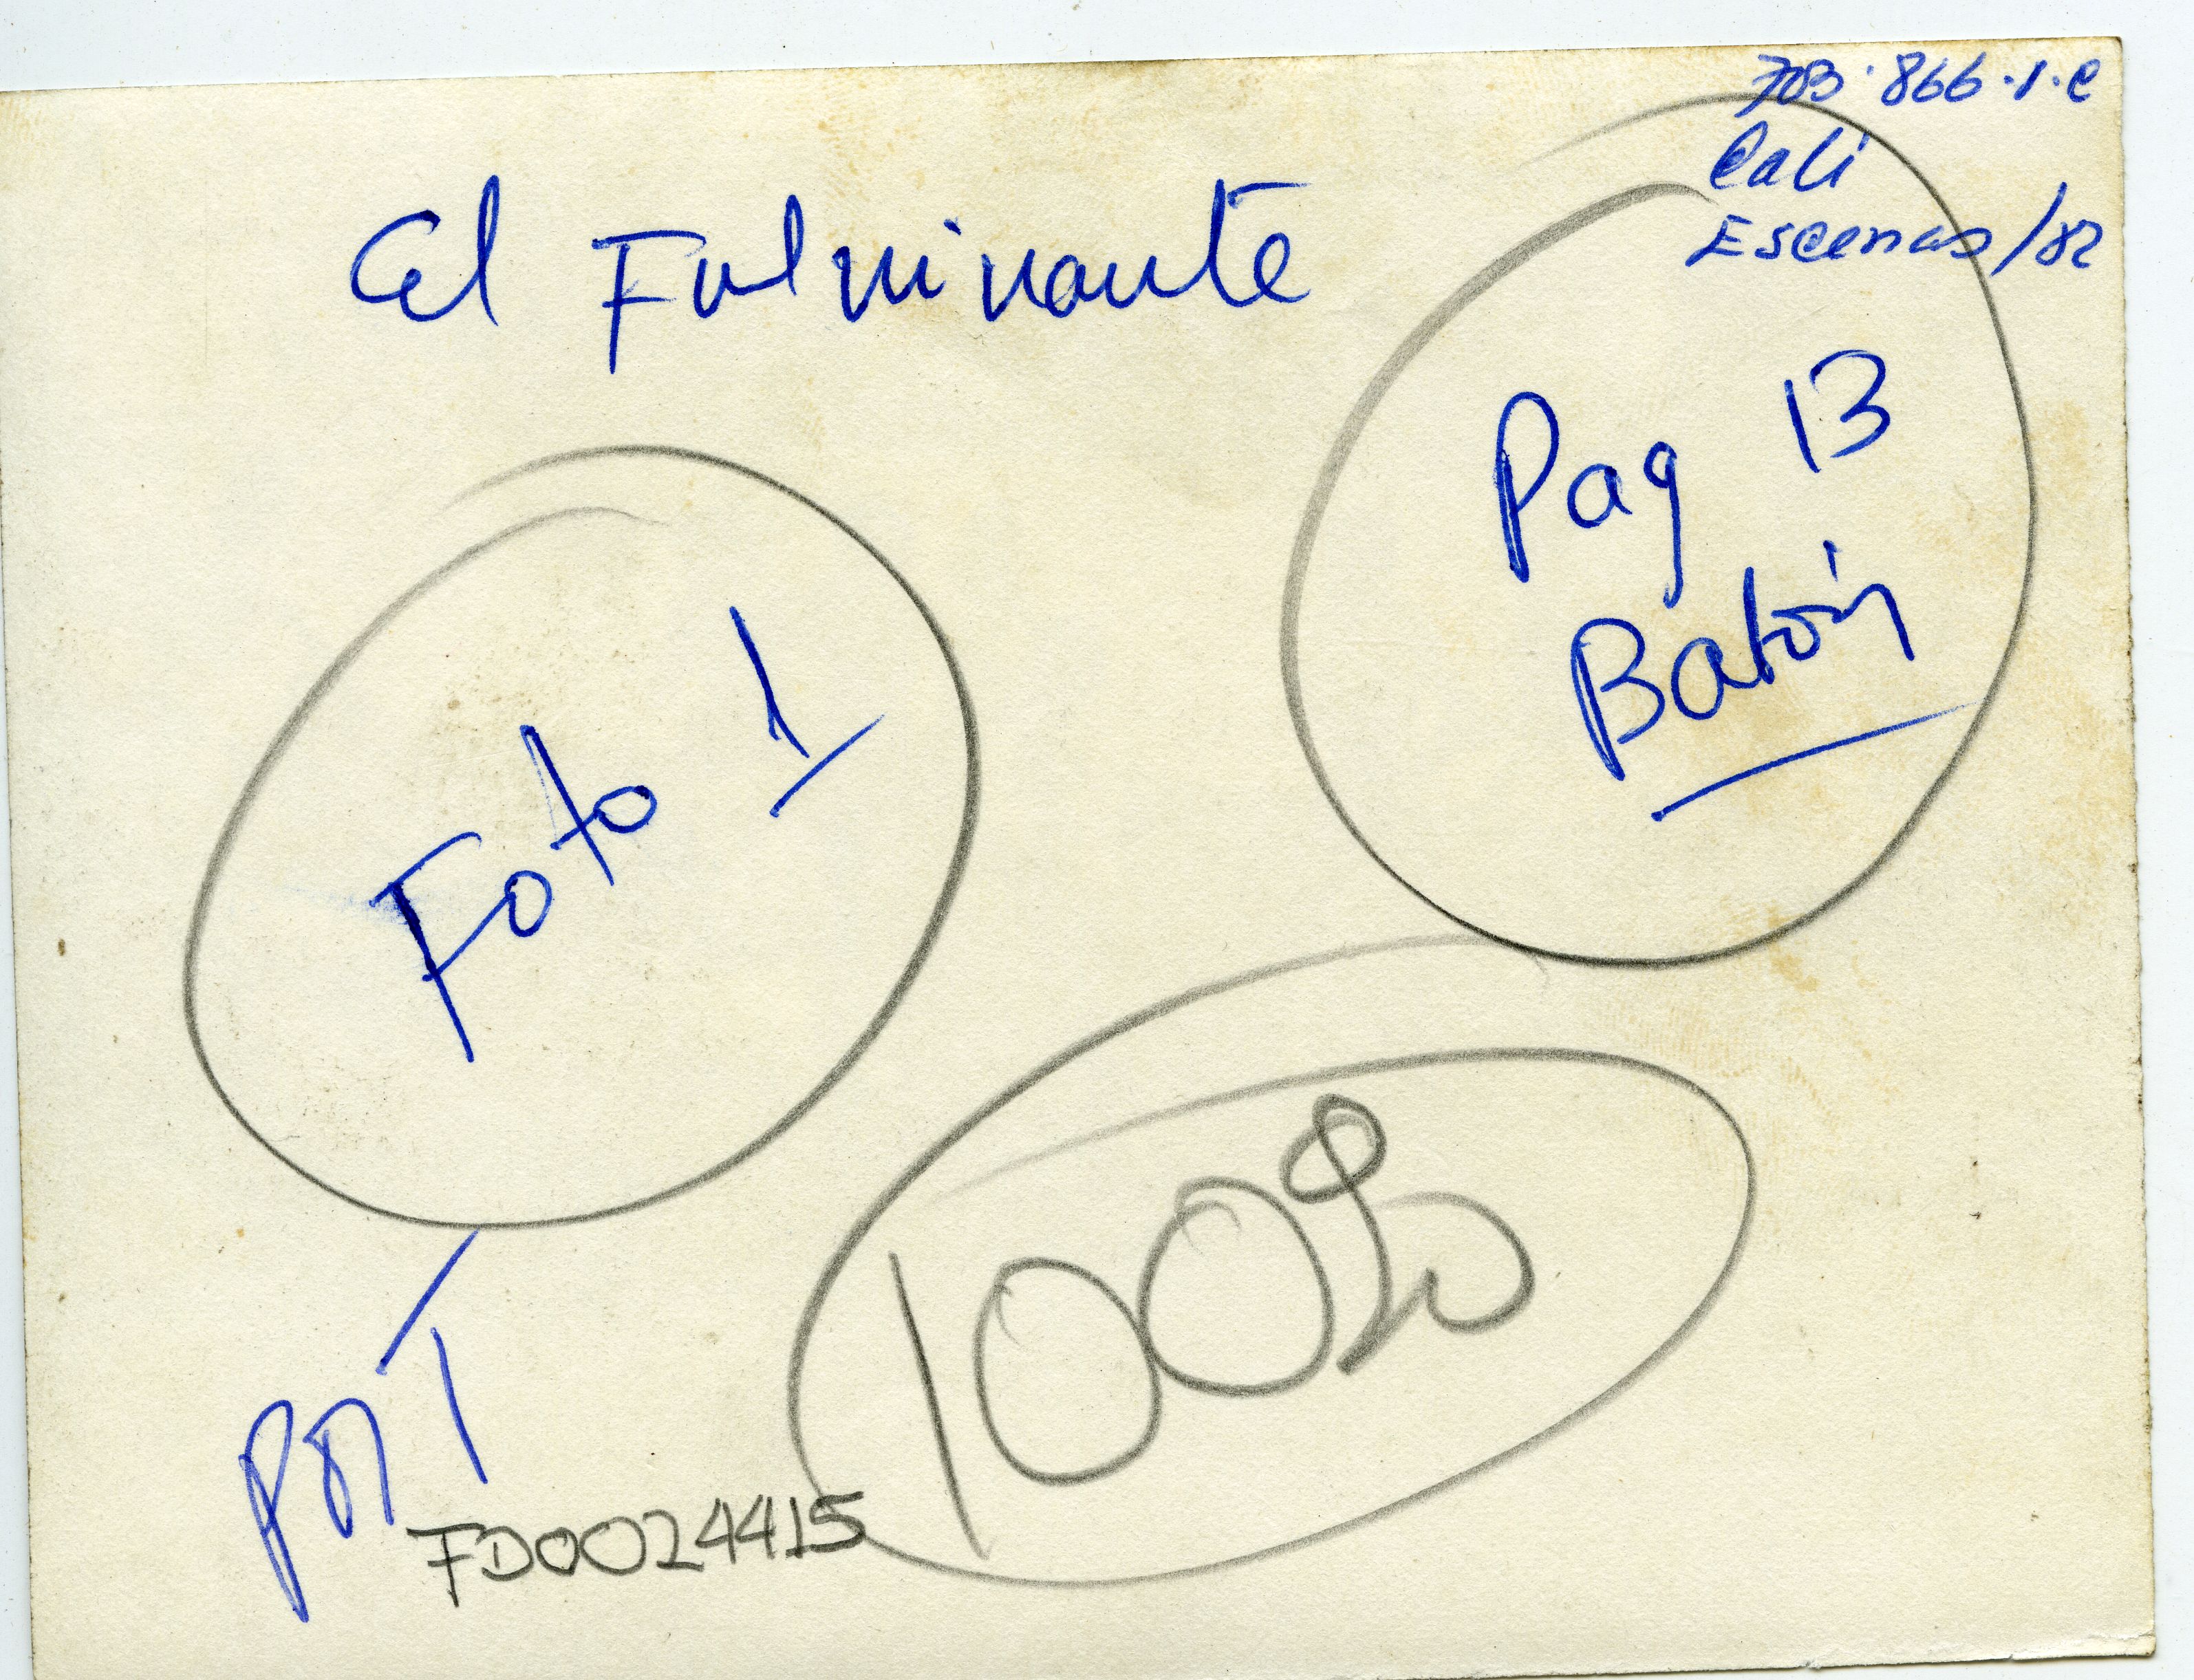 703·866·1·C
Cali
Escenas/82
El Fulminante
Pag 13
Batón
Foto 1
100%
FD0024415